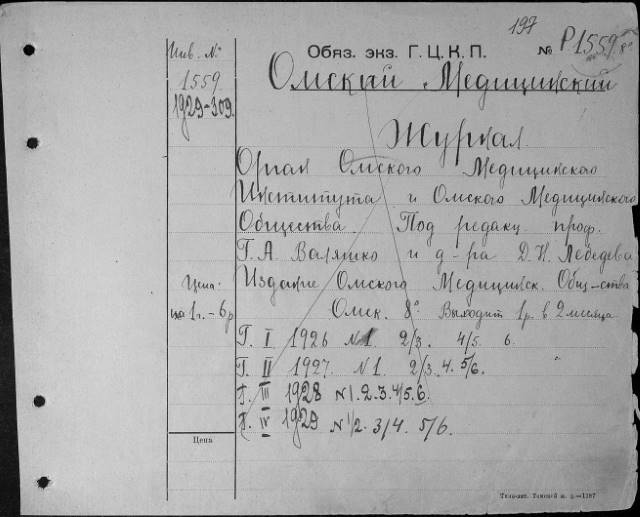 197
Инв. №
1559
1929-309.
Обяз. экз. Г. Ц. К. П.
№ Р1559
Омский Медицинский
Журнал
Орган Омского Медицинского
Института и Омского Медицинского
Общества. Под редакц. проф.
Г. А. Валяшко и д-ра Д. Н. Лебедева
Издание Омского Медицинск. Общ-ства
Цена
на 1 г. - 6 р
Омск. 8° Выходит 1 р. в 2 месяца
Г. I 1926 №1. 2/3. 4/5 6.
Г. II 1927. №1. 2/3. 4. 5/6.
Г. III 1928 №1. 2. 3. 4/5. 6.
Г. IV 1929 №1/2. 3/4. 5/6.
Цена